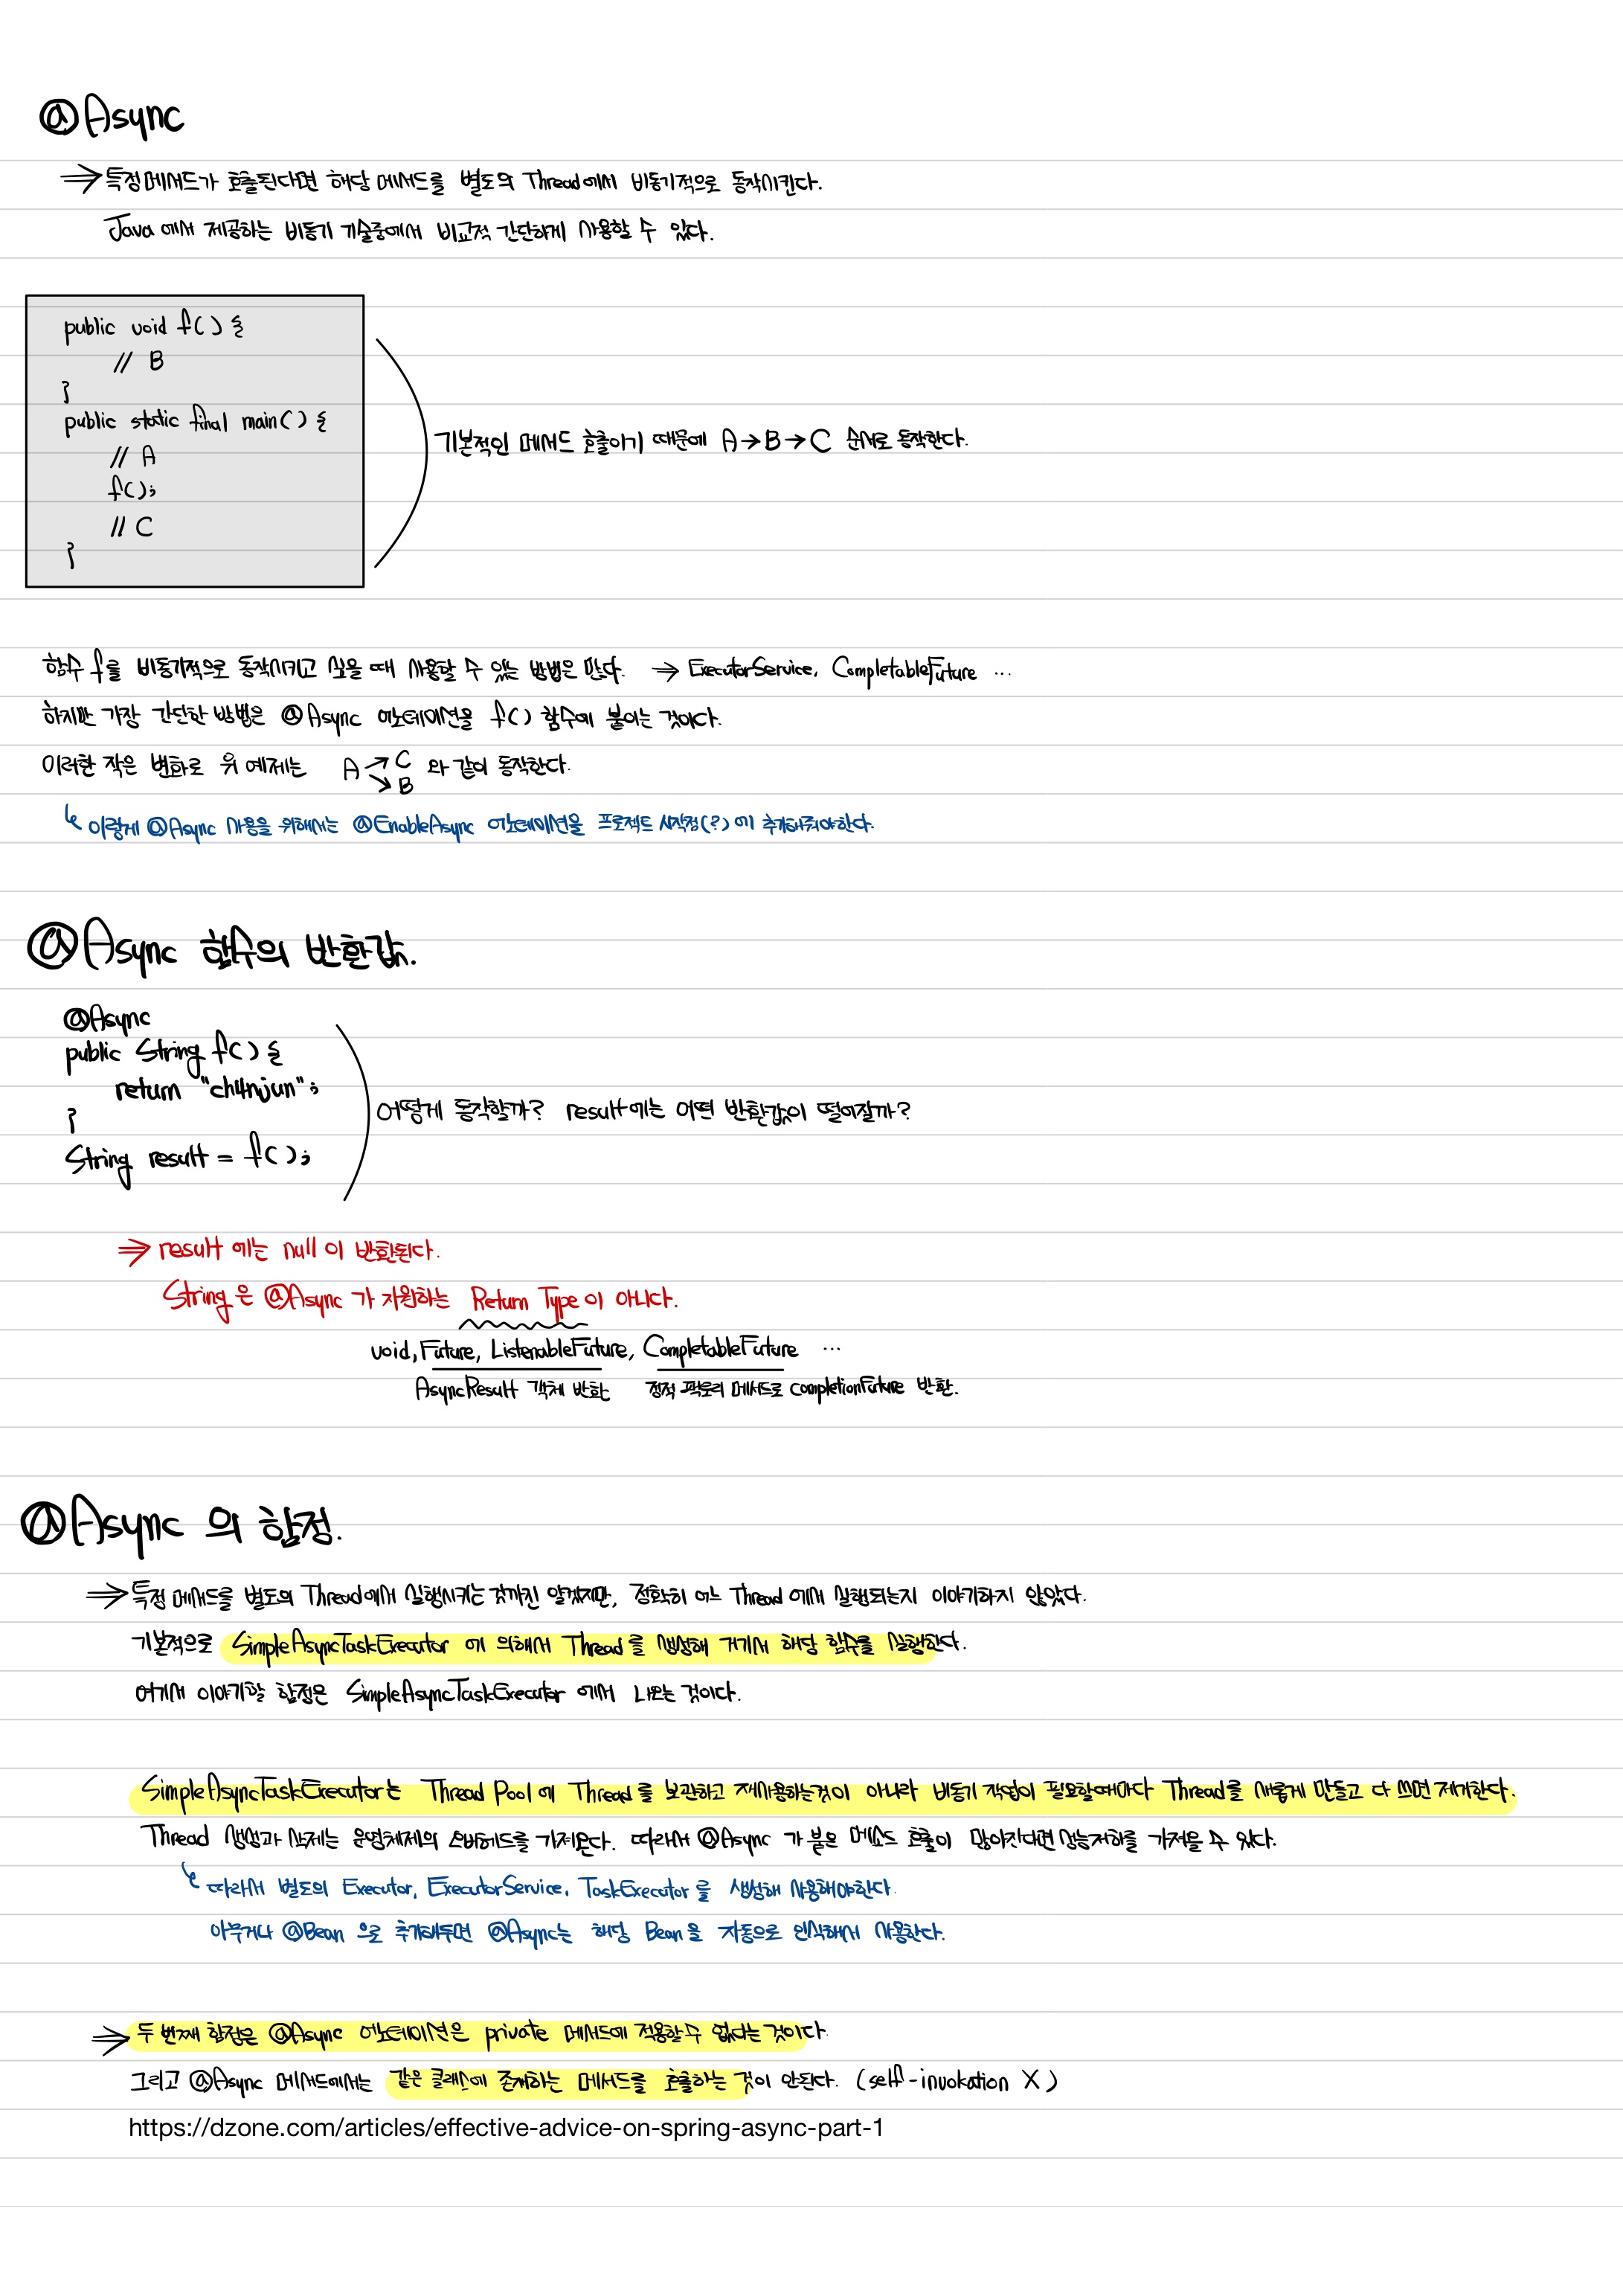 @Async
⇒ 특정 메서드가 호출된다면 해당 메서드를 별도의 Thread에서 비동기적으로 동작시킨다.
Java 에서 제공하는 비동기 기술중에서 비교적 간단하게 사용할 수 있다.
public void f() {
// B
}
public static final main() {
// A
f();
// C
}
기본적인 메서드 호출이기 때문에 A→B→C 순서로 동작한다.
함수 f를 비동기적으로 동작시키고 싶을 때 사용할 수 있는 방법은 많다. → ExecutorService, CompletableFuture ...
하지만 가장 간단한 방법은 @Async 어노테이션을 f() 함수에 붙이는 것이다.
이러한 작은 변화로 위 예제는 A → C 와 같이 동작한다.
↘ B
↳ 이렇게 @Async 사용을 위해서는 @EnableAsync 어노테이션을 프로젝트 시작점(?)에 추가해줘야한다.
@Async 함수의 반환값.
@Async
public String f() {
return "ch4njun";
}
String result = f();
어떻게 동작할까? result에는 어떤 반환값이 떨어질까?
⇒ result 에는 null 이 반환된다.
String은 @Async 가 지원하는 Return Type이 아니다.
void, Future, ListenableFuture, CompletableFuture ...
AsyncResult 객체 반환 정적 팩토리 메서드로 completionFuture 반환.
@Async 의 함정.
⇒ 특정 메서드를 별도의 Thread에서 실행시키는 것까진 알겠지만, 정확히 어느 Thread 에서 실행되는지 이야기하지 않았다.
기본적으로 SimpleAsyncTaskExecutor 에 의해서 Thread를 생성해 거기서 해당 함수를 실행한다.
여기서 이야기할 함정은 SimpleAsyncTaskExecutor 에서 나오는 것이다.
SimpleAsyncTaskExecutor는 Thread Pool 에 Thread 를 보관하고 재사용하는것이 아니라 비동기 작업이 필요할때마다 Thread를 새롭게 만들고 다 쓰면 제거한다.
Thread 생성과 삭제는 운영체제의 오버헤드를 가져온다. 따라서 @Async 가 붙은 메소드 호출이 많아진다면 성능저하를 가져올 수 있다.
↳ 따라서 별도의 Executor, ExecutorService, TaskExecutor 를 생성해 사용해야한다.
아무거나 @Bean 으로 추가해두면 @Async는 해당 Bean을 자동으로 인식해서 사용한다.
⇒ 두 번째 함정은 @Async 어노테이션은 private 메서드에 적용할수 없다는 것이다.
그리고 @Async 메서드에서는 같은 클래스에 존재하는 메서드를 호출하는 것이 안된다. (self-invokation X)
https://dzone.com/articles/effective-advice-on-spring-async-part-1